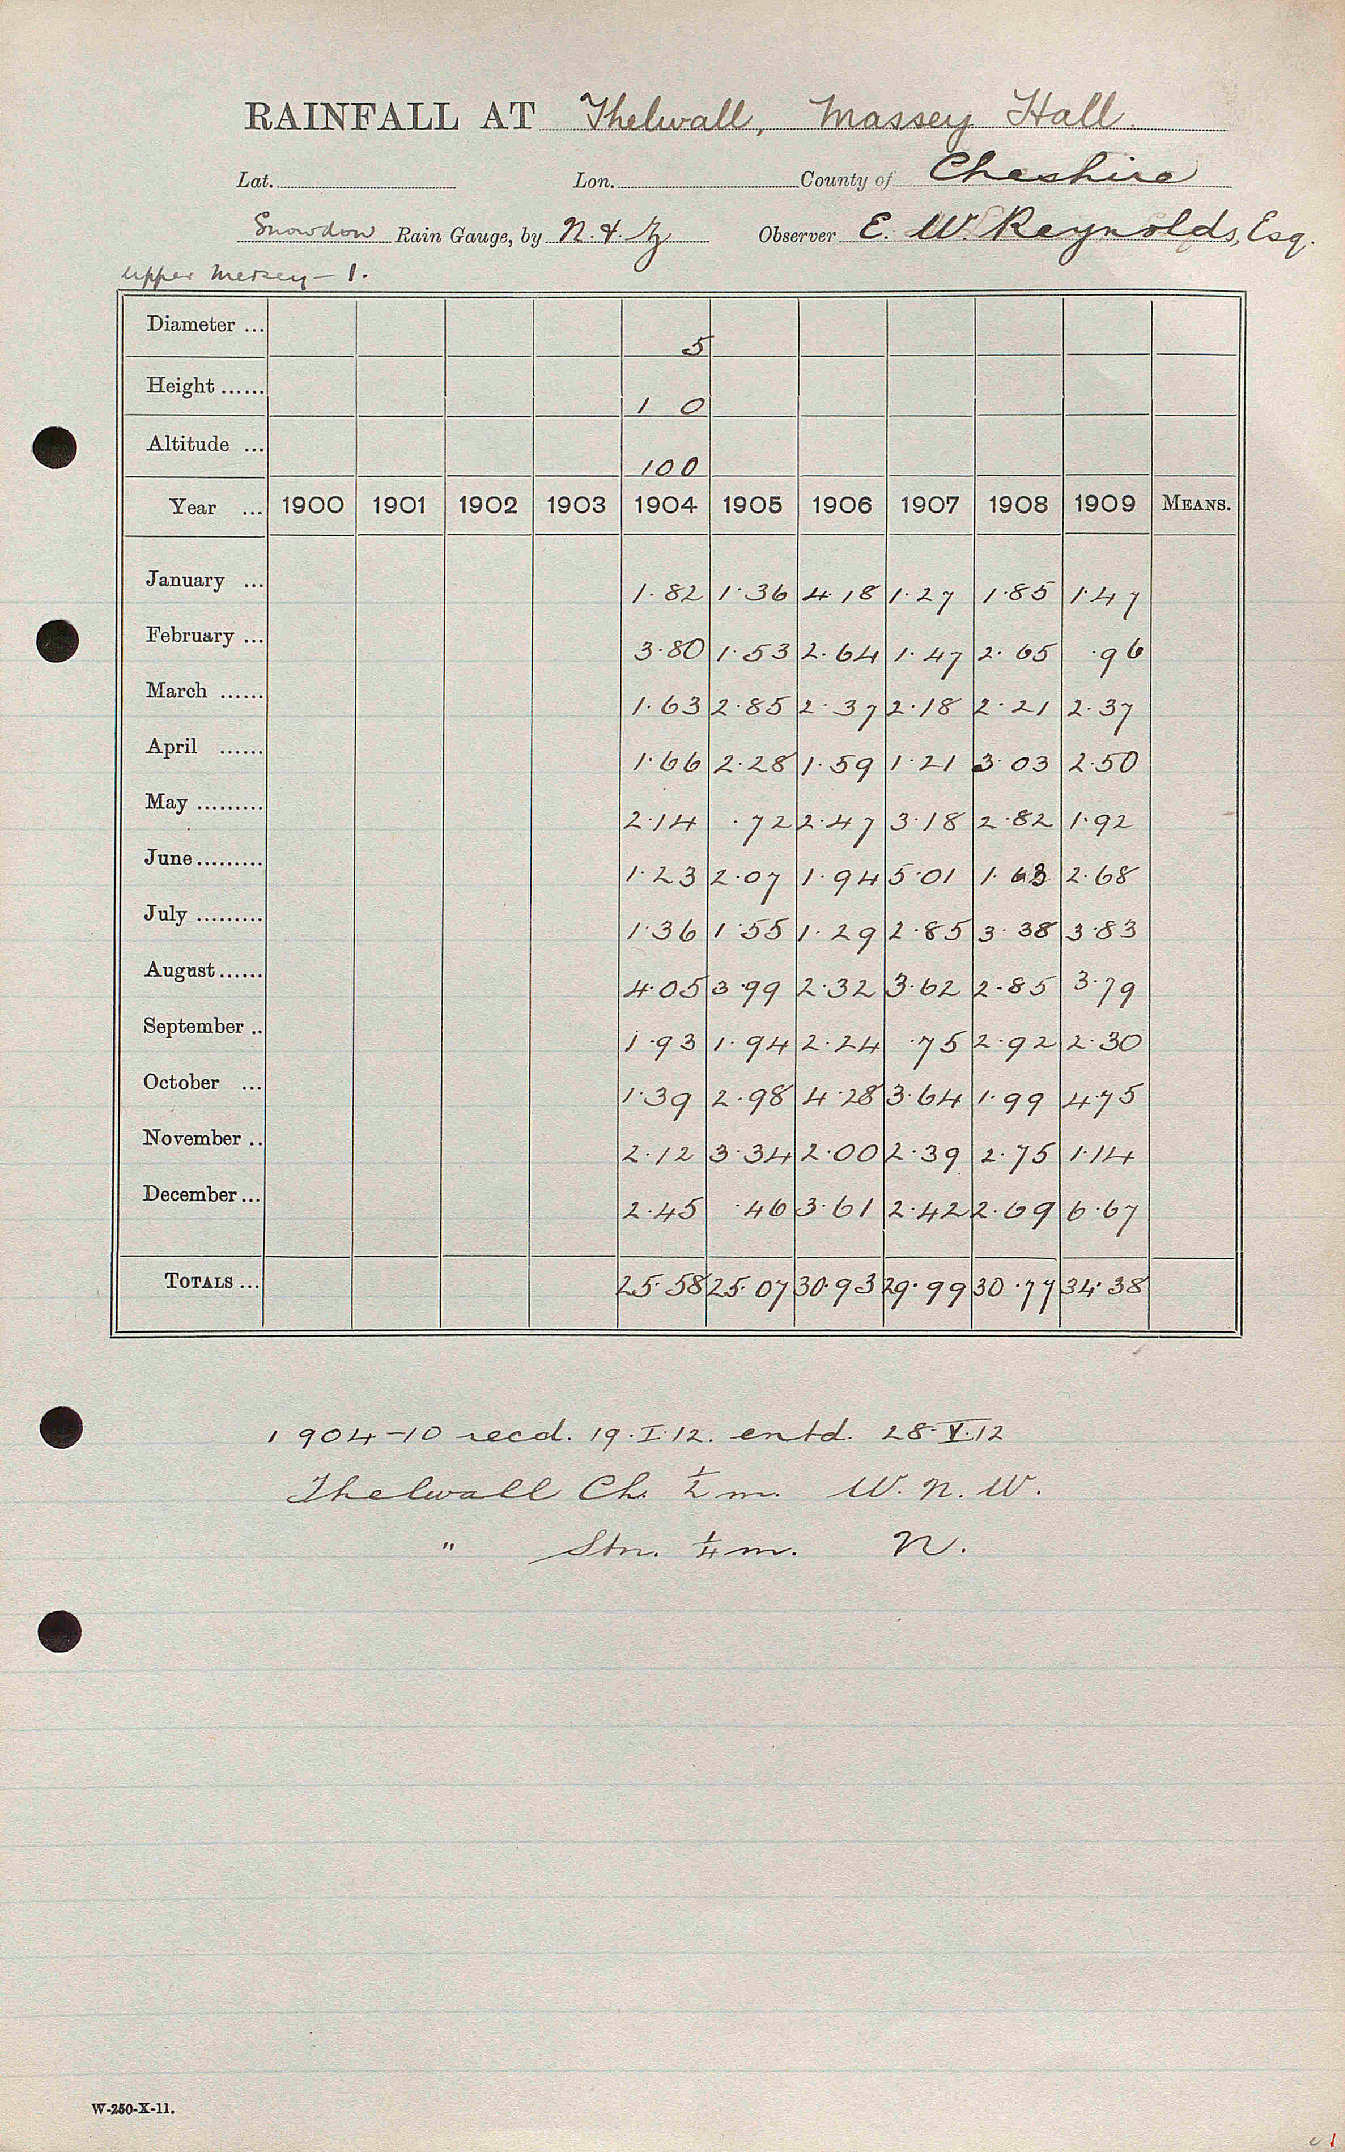 RAINFALL AT Thelwall, Massey Hall.
Lat. Lon. County of Cheshire
Snowdon Rain Gauge, by N. & Z Observer E. W. Reynolds, Esq.
Upper Mersey – 1.
Diameter ... 5
Height ...... 1 0
Altitude ... 100
Year ... 1900 1901 1902 1903 1904 1905 1906 1907 1908 1909 MEANS.
January ... 1.82 1.36 4.18 1.27 1.85 1.47
February ... 3.80 1.53 2.64 1.47 2.65 .96
March ...... 1.63 2.85 2.37 2.18 2.21 2.37
April ...... 1.66 2.28 1.59 1.21 3.03 2.50
May ......... 2.14 .72 2.47 3.18 2.82 1.92
June ......... 1.23 2.07 1.94 5.01 1.63 2.68
July ......... 1.36 1.55 1.29 2.85 3.38 3.83
August ...... 4.05 3.99 2.32 3.62 2.85 3.79
September .. 1.93 1.94 2.24 .75 2.92 2.30
October ... 1.39 2.98 4.28 3.64 1.99 4.75
November .. 2.12 3.34 2.00 2.39 2.75 1.14
December ... 2.45 .46 3.61 2.42 2.69 6.67
TOTALS ... 25.58 25.07 30.93 29.99 30.77 34.38
1904–10 recd. 19.I.12. entd. 28.V.12
Thelwall Ch. ½ m. W. N. W.
" Stn. ¼ m. N.
W-250-X-11.